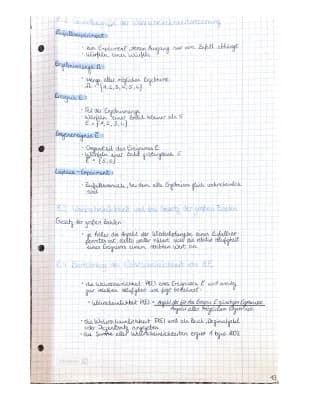 Zufallsexperiment
· ein Experiment, dessen Ausgang nur vom Zufall abhängt
· Würfeln eines Würfels
Ergebnismenge Ω
· Menge aller möglichen Ergebnisse
Ω = {1, 2, 3, 4, 5, 6}
Ereignis E
· Teil der Ergebnismenge
· Würfeln einer Zahl kleiner als 5
E = {1, 2, 3, 4}
Gegenereignis Ē
· Gegenteil des Ereignisses E
· Würfeln einer Zahl größergleich 5
Ē = {5, 6}
Laplace-Experiment
· Zufallsversuch, bei dem alle Ergebnisse gleich wahrscheinlich
sind
und das Gesetz der großen Zahlen
Gesetz der großen Zahlen:
· je höher die Anzahl der Wiederholungen eines
relative Häufigkeit
eines Ereignisses einem Wert an
der Wahrscheinlichkeit von
· die Wahrscheinlichkeit P(E) eines Ereignisses E wird
zur relativen Häufigkeit wie folgt berechnet:
· Wahrscheinlichkeit P(E) = Anzahl der für das Ereignis E günstigen Ergebnisse
Anzahl aller möglichen Ergebnisse
· die Wahrscheinlichkeit P(E) wird als Bruch, Dezimalzahl
oder Prozentsatz angegeben
· die Summe aller Wahrscheinlichkeiten ergibt 1 bzw. 100%